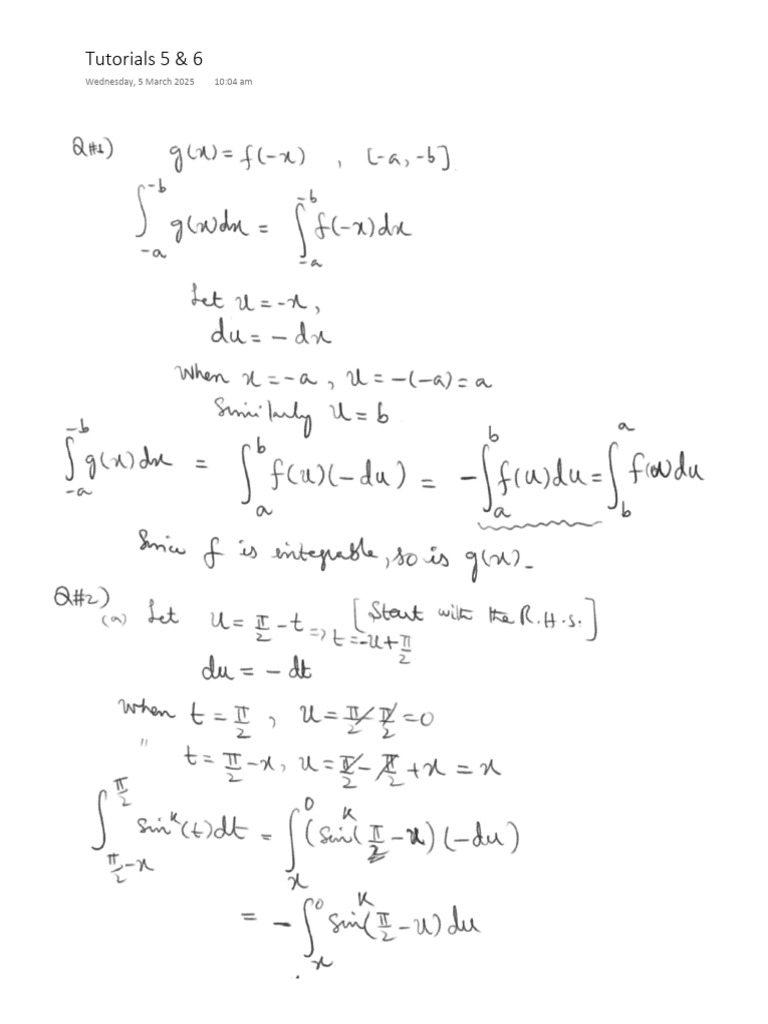 Tutorials 5 & 6
Wednesday, 5 March 2025 10:04 am
Q#1) g(x) = f(-x) , [-a, -b]
∫_{-a}^{-b} g(x)dx = ∫_{-a}^{-b} f(-x)dx
Let u = -x,
du = - dx
When x = -a , u = -(-a) = a
Similarly u = b
∫_{-a}^{-b} g(x)dx = ∫_{a}^{b} f(u)(-du) = -∫_{a}^{b} f(u)du = ∫_{b}^{a} f(u)du
Since f is integrable, so is g(x).
Q#2)
(a) Let u = π/2 - t => t = -u + π/2 [Start with the R.H.S.]
du = - dt
When t = π/2 , u = π/2 - π/2 = 0
" t = π/2 - x, u = π/2 - π/2 + x = x
∫_{π/2 - x}^{π/2} sin^k(t)dt = ∫_{x}^{0} (sin^k(π/2 - u) (-du)
= - ∫_{x}^{0} sin^k(π/2 - u) du